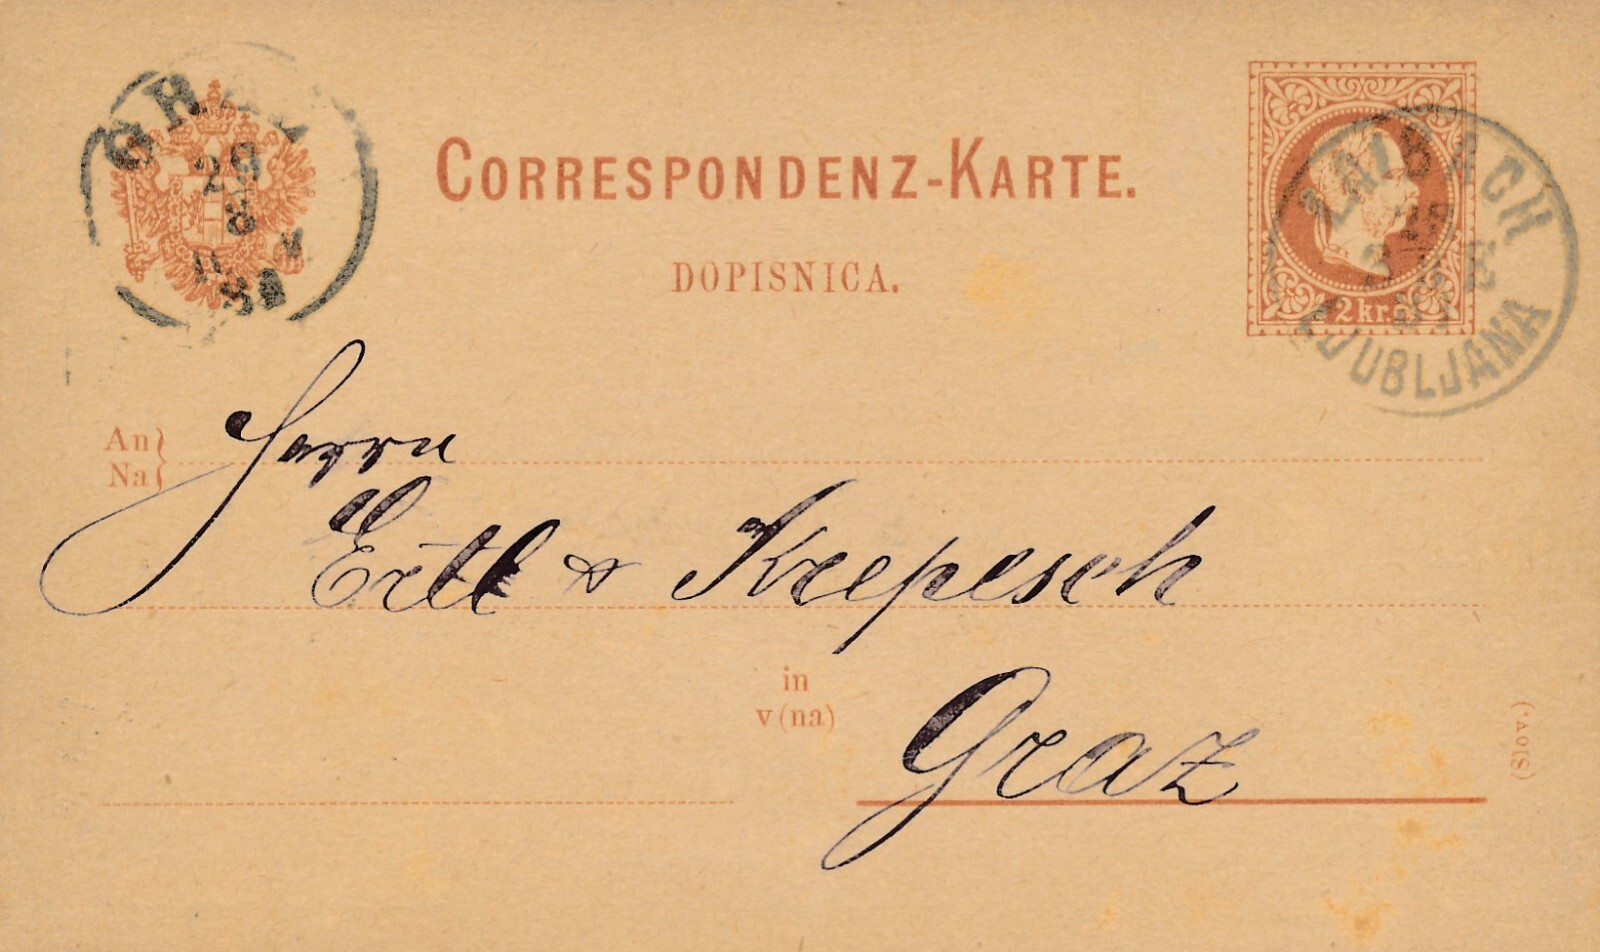 GRAZ
29
8
CORRESPONDENZ-KARTE.
DOPISNICA.
2 kr.
LAIBACH
LJUBLJANA
An
Na
Herrn
Ertl & Krepesch
in
v(na)
Graz
(Slov.)